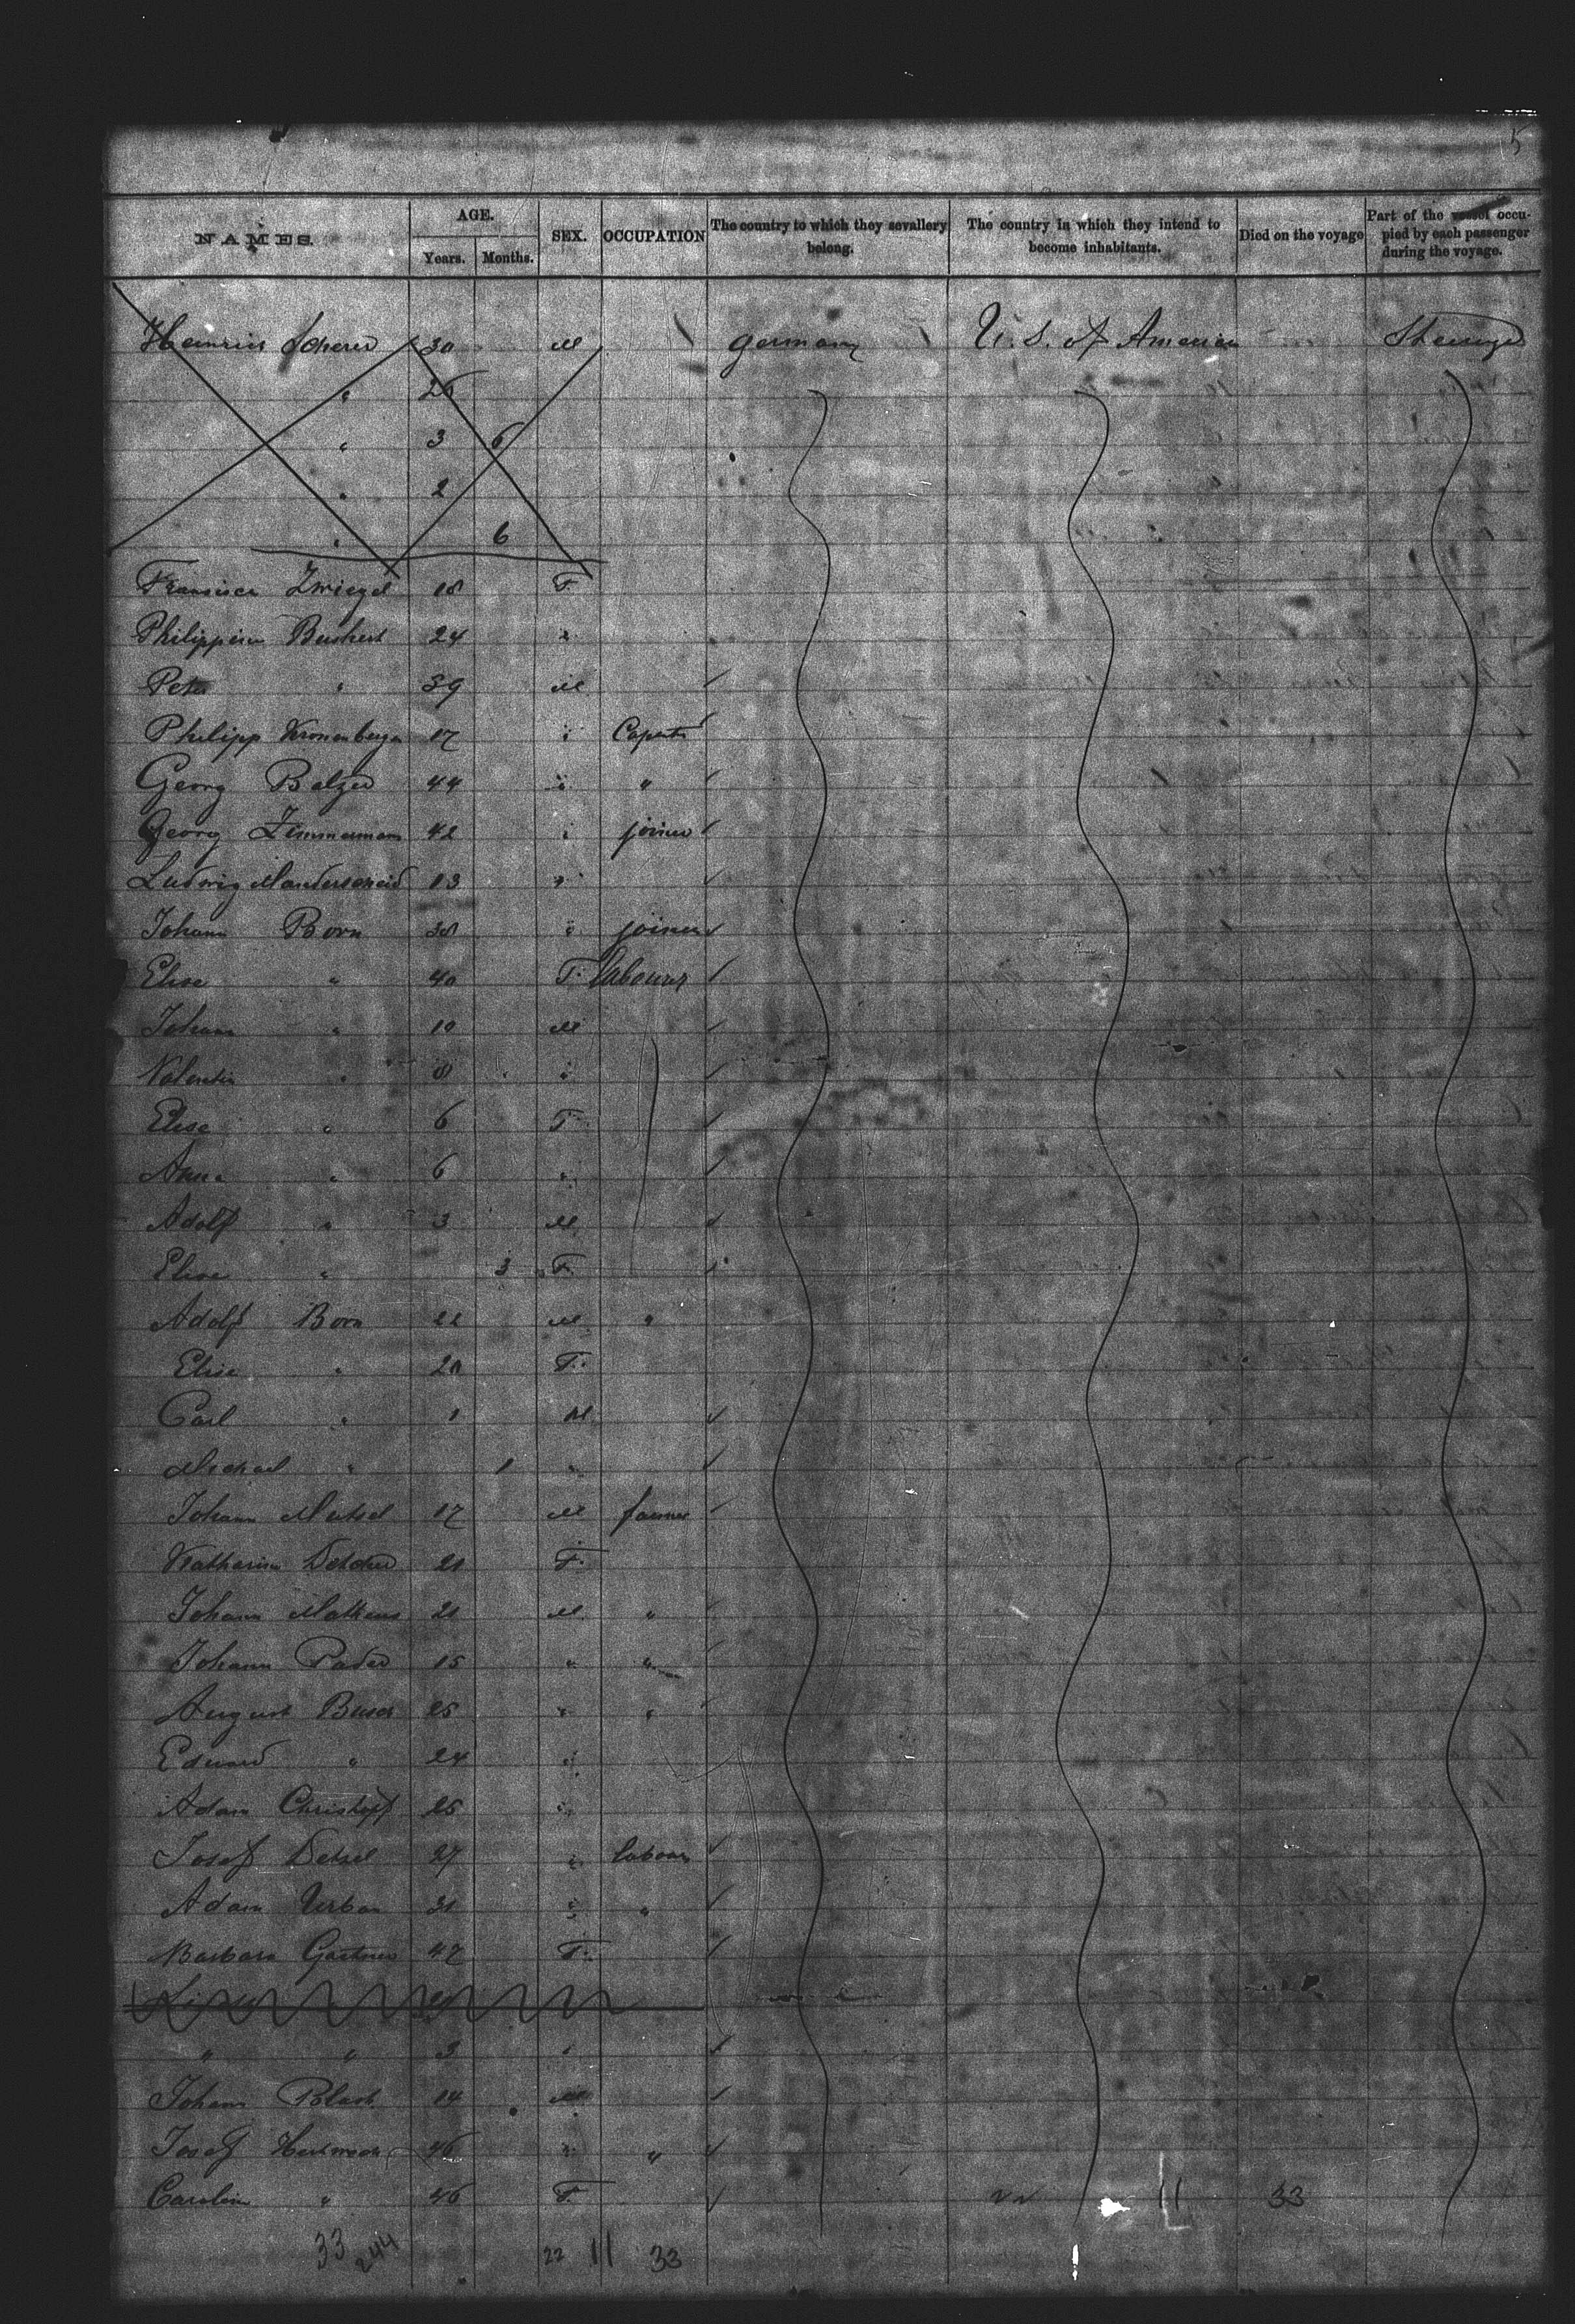 5
NAMES. AGE. SEX. OCCUPATION The country to which they sevallery belong. The country in which they intend to become inhabitants. Died on the voyage Part of the vessel occupied by each passenger during the voyage.
Years. Months.
Heinrich Scherer 30 M Germany U. S. of America Steerage
" 26
" 3 6
" 2
" 6
Fransisca Zwiegel 18 F.
Philippine 24 "
Peter " 39 M
Philipp Kronenberger 17 "
Georg Balzer 44 " "
Georg Zimmermann 42 " joiner
Ludwig Manderscheid 13 "
Johann Born 38 " joiner
Elise " 40 F. labourer
Johann " 10 M
Valentin " 8 "
Elise " 6 F.
Anna " 6 "
Adolf " 3 M
Elise " 3 F.
Adolf Born 22 M "
Elise " 20 F.
Carl " 1 M
Michael " 1 "
Johann 17 M farmer
Katharina 21 F.
Johann Matheus 21 M "
Johann Pader 15 " "
August Busch 25 " "
Eduard " 24 "
Adam Christoff 25 "
Josef Detzel 27 " labourer
Adam Urban 31 " "
Barbara Gartner 47 F.
" " 3 "
Johann 14 M
Josef 46 " "
Carolin " 46 F. 22 11 33
33 244 22 11 33